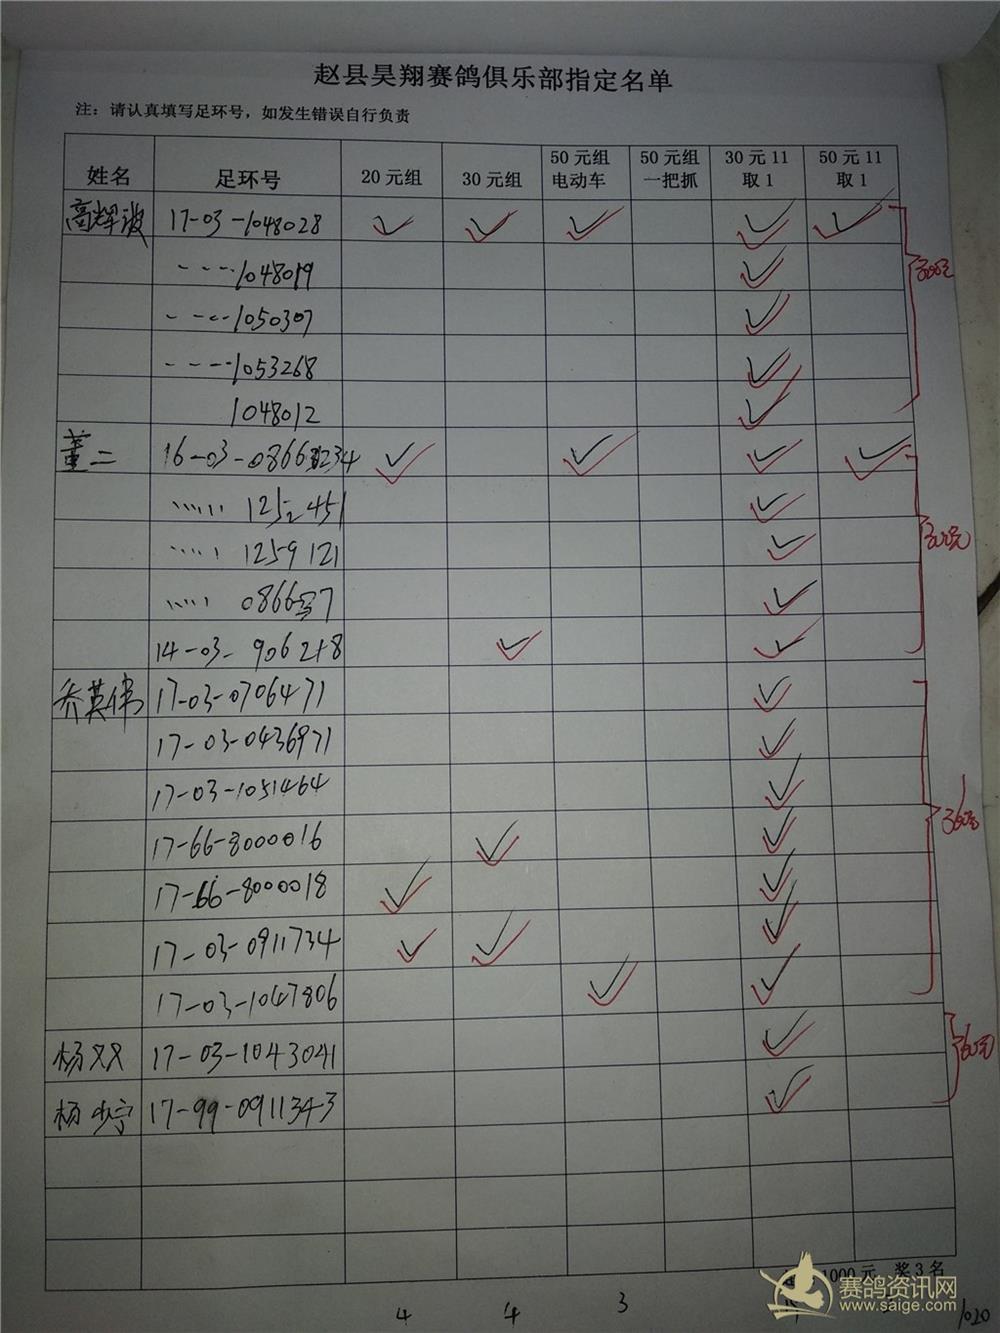 赵县昊翔赛鸽俱乐部指定名单
注：请认真填写足环号，如发生错误自行负责
姓名 足环号 20 元组 30 元组 50 元组电动车 50 元组一把抓 30 元 11 取 1 50 元 11 取 1
高辉波 17-03-1048028 ✓ ✓ ✓ ✓ ✓
1048019 ✓
1050307 ✓
1053268 ✓
1048012 ✓
300元
董二 16-03-0866234 ✓ ✓ ✓ ✓
1252451 ✓
1259121 ✓
✓
14-03- ✓ ✓
300元
乔英伟 17-03-0706471 ✓
17-03-0436971 ✓
17-03-1051464 ✓
17-66-8000016 ✓ ✓
17-66-8000018 ✓ ✓
17-03-0911734 ✓ ✓ ✓
17-03-1047806 ✓ ✓
360元
杨双双 17-03-1043041 ✓
杨少宁 17-99-0911343 ✓
60元
1000 元 奖 3 名
4 4 3 1020
赛鸽资讯网
www.saige.com